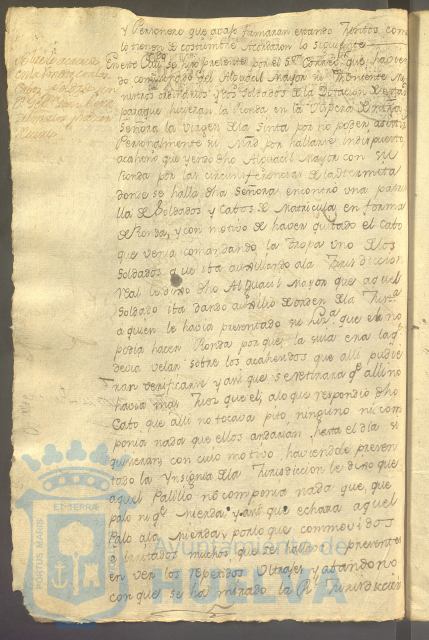 y Personero que avajo firmaran estando Juntos como
lo tienen de costumbre Acordaron lo siguiente
En este Cav.do se hizo presente por el S.or Correx.or que, havien
do comisionado del Alguacil Mayor su Theniente Mi
nistros ordinarios y Soldados de la Dotacion de esta
para que hizieran la Ronda en la Vispera de nra
Señora la Virgen de la Sinta por no poder asistir
Personalmente su Mrd por hallarse indispuesto
acahecio que yendo dho Alguacil Mayor con su
Ronda por las circunferencias de la Hermita
donde se halla dha Señora encontro una patru
lla de Soldados y Cabos de Matricula en forma
de Ronda, y con motivo de haver quitado el Cabo
que venia comandando la Tropa uno de los
Soldados que iba auxiliando a la Jurisdiccion
Real le dixo dho Alguacil Mayor que aquel
Soldado iba dando auxilio de orden de la Jur.a
a quien le havia presentado su que el no
podia hacer Ronda porque, la suia era la q.e
devia velar sobre los acahecidos que alli pudie
ran verificarse y asi que se retirara q.e alli no
havia mas Juez que el; a lo que respondio dho
Cabo que alli no tocava pito ninguno ni com
ponia nada que ellos andarian, hasta el dia si
quisieran con cuio motivo, haciendole presen
tado la Ynsignia de la Jurisdiccion le dixo que
aquel Palillo no componia nada que, que
palo ni q.e Mierda, y asi que echara aquel
Palo a la Mierda, y por lo que commovidos
e irritados muchos que se hallaron presentes
en ver los repetidos Ultrajes y abandono
con que se ha mirado la R.l Jurisdiccion
PORTUS MARIS ET TERRÆ
Ayuntamiento de
HUELVA